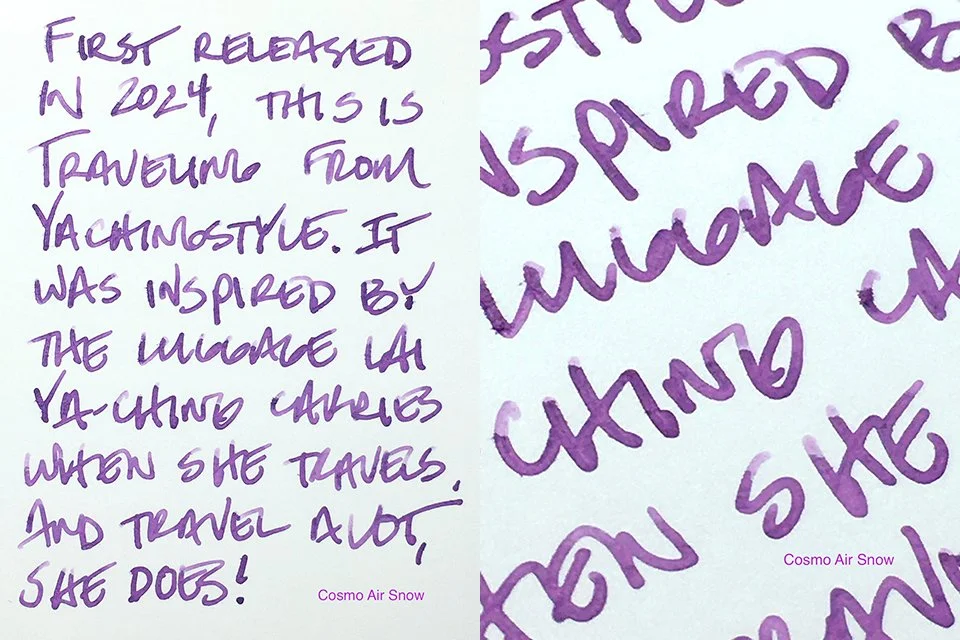 FIRST RELEASED
IN 2024, THIS IS
TRAVELING FROM
YACHINGSTYLE. IT
WAS INSPIRED BY
THE LUGGAGE LAI
YA-CHING CARRIES
WHEN SHE TRAVELS.
AND TRAVEL A LOT,
SHE DOES!
Cosmo Air Snow
GSTYLE
NSPIRED BY
LUGGAGE
CHING CA
HEN SHE
RAV
Cosmo Air Snow